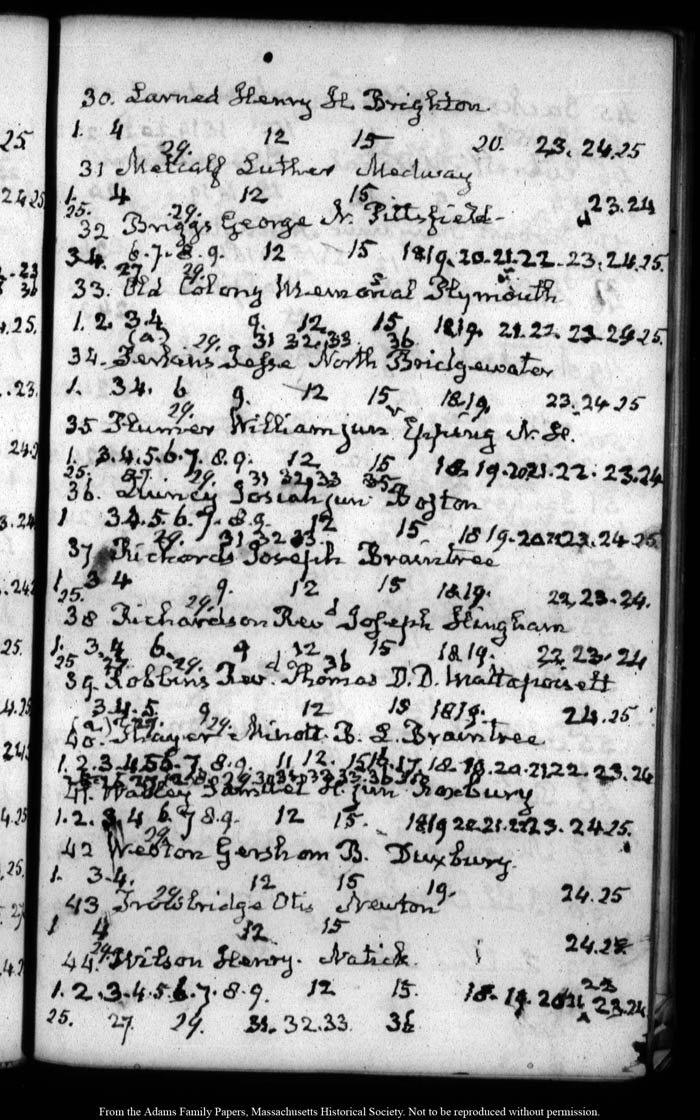 30. Larned Henry H. Brighton.
1. 4 12 15 20. 23. 24.25
29.
31 Metcalf Luther Medway
1. 4 12 15 23.24
25. 29.
32 Briggs George N. Pittsfield-
3.4. 6.7.8.9. 12 15 18 19. 20.21.22. 23.24.25.
27 29.
33. Old Colony Memorial Plymouth
1. 2. 3.4 9. 12 15 18 19. 21.22. 23.24.25.
(a) 29. 31 32. 33 36
34. Perkins Jesse North Bridgewater
1. 3 4. 6 9. 12 15 18 19. 23.24 25
29.
35 Plumer William jun. Epping N. H.
1. 3.4.5.6.7. 8.9. 12 15 18. 19.20.21.22. 23.24
25. 27. 29. 31 32. 33 35
36. Quincy Josiah jun Boston
1 3.4.5.6.7. 8.9. 12 15 18 19.20.21.22.23.24 25
29. 31 32 33
37 Richards Joseph Braintree
1. 3 4 9. 12 15 18 19. 22, 23.24.
25. 29.
38 Richardson Revd Joseph Hingham
1. 3.4 6. 9 12 15 18 19. 22. 23. 24
25 27. 29. 36
39. Robbins Rev. Thomas D.D. Mattapoisett
3.4.5. 9. 12 15 18 19. 24.25
(a) 27. 29.
40. Thayer Minott B. L. Braintree
1.2.3.4.5.6.7. 8.9. 11 12. 15 17. 18. 19. 20.21.22. 23.24
41. Walley Samuel H. jun Roxbury
1.2. 3.4 6.7 8.9. 12 15. 18 19 20.21.22 23. 24 25.
29.
42 Weston Gershom B. Duxbury.
1. 3.4. 12 15 19. 24.25
29.
43 Trowbridge Otis Newton
1 4 12 15 24.25
29.
44. Wilson Henry. Natick
1. 2. 3.4.5.6.7.8.9. 12 15. 18. 19. 20 21 22 23.24
25. 27. 29. 31. 32.33 36
From the Adams Family Papers, Massachusetts Historical Society. Not to be reproduced without permission.